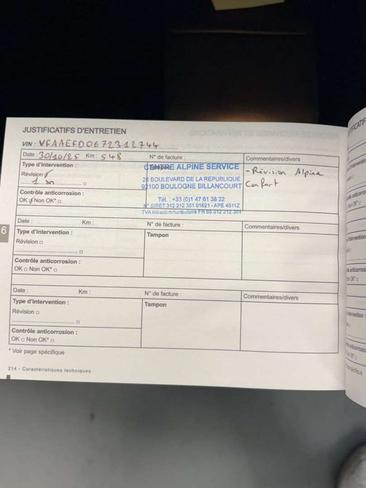 JUSTIFICATIFS D'ENTRETIEN
VIN :
Date : 30/10/25 Km : 548 N° de facture : Commentaires/divers
Type d'intervention :
Révision
1 an
Contrôle anticorrosion :
OK Non OK*
CENTRE ALPINE SERVICE
BOULEVARD DE LA REPUBLIQUE
92100 BOULOGNE BILLANCOURT
Tél. : +33 (0)1 47 61 38 22
- Révision Alpine
Confort
6
Date : Km : N° de facture : Commentaires/divers
Type d'intervention : Tampon
Révision
Contrôle anticorrosion :
OK Non OK*
Date : Km : N° de facture : Commentaires/divers
Type d'intervention : Tampon
Révision
Contrôle anticorrosion :
OK Non OK*
* Voir page spécifique
214 - Caractéristiques techniques